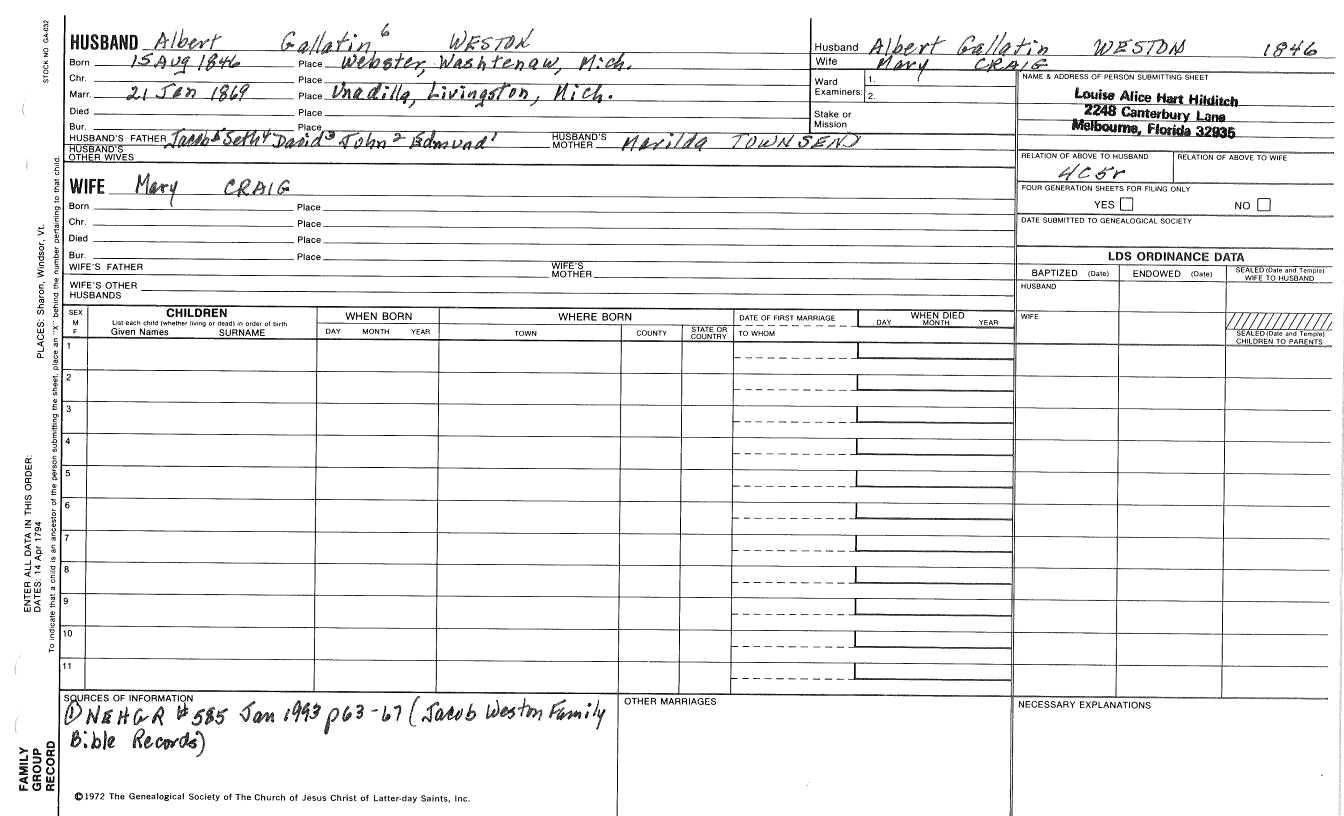 STOCK NO. GA-032
PLACES: Sharon, Windsor, Vt.
ENTER ALL DATA IN THIS ORDER:
DATES: 14 Apr 1794
To indicate that a child is an ancestor of the person submitting the sheet, place an "X" behind the number pertaining to that child.
FAMILY GROUP RECORD
HUSBAND Albert Gallatin⁶ WESTON
Born 15 Aug 1846 Place Webster, Washtenaw, Mich.
Chr. Place
Marr. 21 Jan 1869 Place Unadilla, Livingston, Mich.
Died Place
Bur. Place
HUSBAND'S FATHER Jacob⁵ Seth⁴ David³ John² Edmund¹ HUSBAND'S MOTHER Marilda TOWNSEND
HUSBAND'S OTHER WIVES
WIFE Mary CRAIG
Born Place
Chr. Place
Died Place
Bur. Place
WIFE'S FATHER WIFE'S MOTHER
WIFE'S OTHER HUSBANDS
Husband Albert Gallatin WESTON 1846
Wife Mary CRAIG
Ward Examiners: 1. 2.
Stake or Mission
NAME & ADDRESS OF PERSON SUBMITTING SHEET
Louise Alice Hart Hilditch
2248 Canterbury Lane
Melbourne, Florida 32935
RELATION OF ABOVE TO HUSBAND RELATION OF ABOVE TO WIFE
4C5r
FOUR GENERATION SHEETS FOR FILING ONLY
YES NO
DATE SUBMITTED TO GENEALOGICAL SOCIETY
LDS ORDINANCE DATA
BAPTIZED (Date) ENDOWED (Date) SEALED (Date and Temple) WIFE TO HUSBAND
HUSBAND
WIFE
SEALED (Date and Temple) CHILDREN TO PARENTS
SEX M F
CHILDREN
List each child (whether living or dead) in order of birth
Given Names SURNAME
WHEN BORN
DAY MONTH YEAR
WHERE BORN
TOWN COUNTY STATE OR COUNTRY
DATE OF FIRST MARRIAGE
TO WHOM
WHEN DIED
DAY MONTH YEAR
1
2
3
4
5
6
7
8
9
10
11
SOURCES OF INFORMATION
① NEHGR #585 Jan 1993 p63-67 (Jacob Weston Family
Bible Records)
OTHER MARRIAGES
NECESSARY EXPLANATIONS
©1972 The Genealogical Society of The Church of Jesus Christ of Latter-day Saints, Inc.